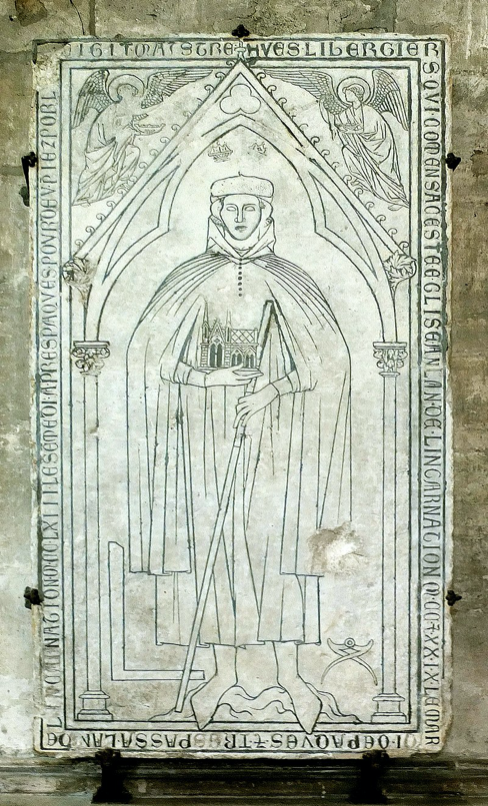 CI GIT MAISTRE HVES LIBERGIERS
QVI COMENSA CESTE EGLISE AN LAN DE LINCARNATION M CC 7 XX IX LE MAR
DI DE PAQVES 7 TRESPASSA LAN DE
LINCARNATION M CC LXIII LE SEMEDI APRES PAQVES POVR DEV POR